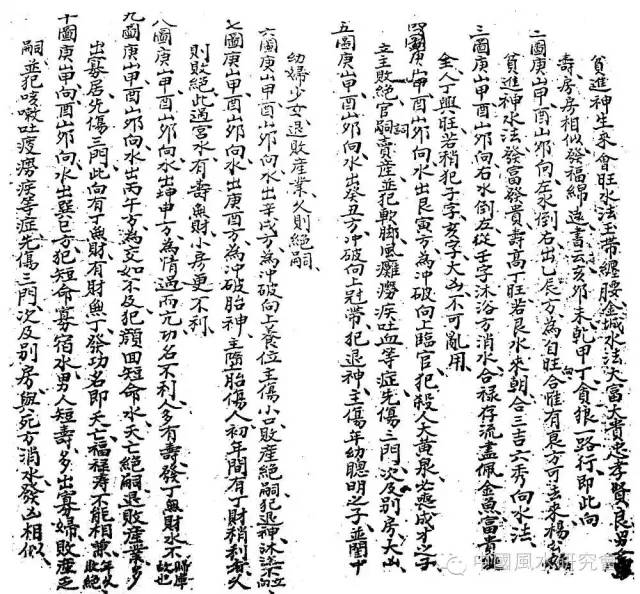 貧進神生來會旺水法玉帶纏腰金城水法大富大貴忠孝賢良男女
壽房房相似發福綿遠書云亥卯未乾甲丁貪狼一路行即此向
二圖庚山甲向酉山卯向左水倒右出乙辰方為自旺合惟有衰方可去來楊公
貧進神水法發富發貴壽高丁旺若艮水來朝合三吉六秀向水法
三圖庚山甲向酉山卯向右水倒左從壬字沐浴方消水合祿存流盡佩金魚富貴双
全人丁興旺若稍犯子字亥字大凶不可亂用
四圖庚山甲向酉山卯向水出艮寅方為冲破向上臨官犯殺人大黃泉必喪成才之子
立主敗絕官詞賣產並犯軟脚風灘癆疾吐血等症先傷三門次及別房大凶
五圖庚山甲向酉山卯向水出癸丑方冲破向上冠帶犯退神主傷年幼聰明之子並閨中
幼婦少女退敗產業久則絕嗣
六圖庚山甲向酉山卯向水出辛戌方為冲破向上養位主傷小口敗產絕嗣犯退神沐浴不立向
七圖庚山甲向酉山卯向水出庚酉方為冲破胎神主墮胎傷人初年間有丁財稍利者久
則敗絕此過宮水有壽無財小房更不利
八圖庚山甲向酉山卯向水出坤申方為情過而亢功名不利人多有壽發丁無財水不歸庫故也
九圖庚山甲向酉山卯向水出丙午方為交如不及犯顏回短命水夭亡絕嗣退敗產業多
出寡居先傷三門此向有丁無財有財無丁發功名即夭亡福祿壽不能相兼年久敗絕
十圖庚山甲向酉山卯向水出巽巳方犯短命寡宿水男人短壽多出寡婦敗產乏
嗣並犯咳嗽吐痰癆疾等症先傷三門次及別房與死方消水發凶相似
中國風水研究會